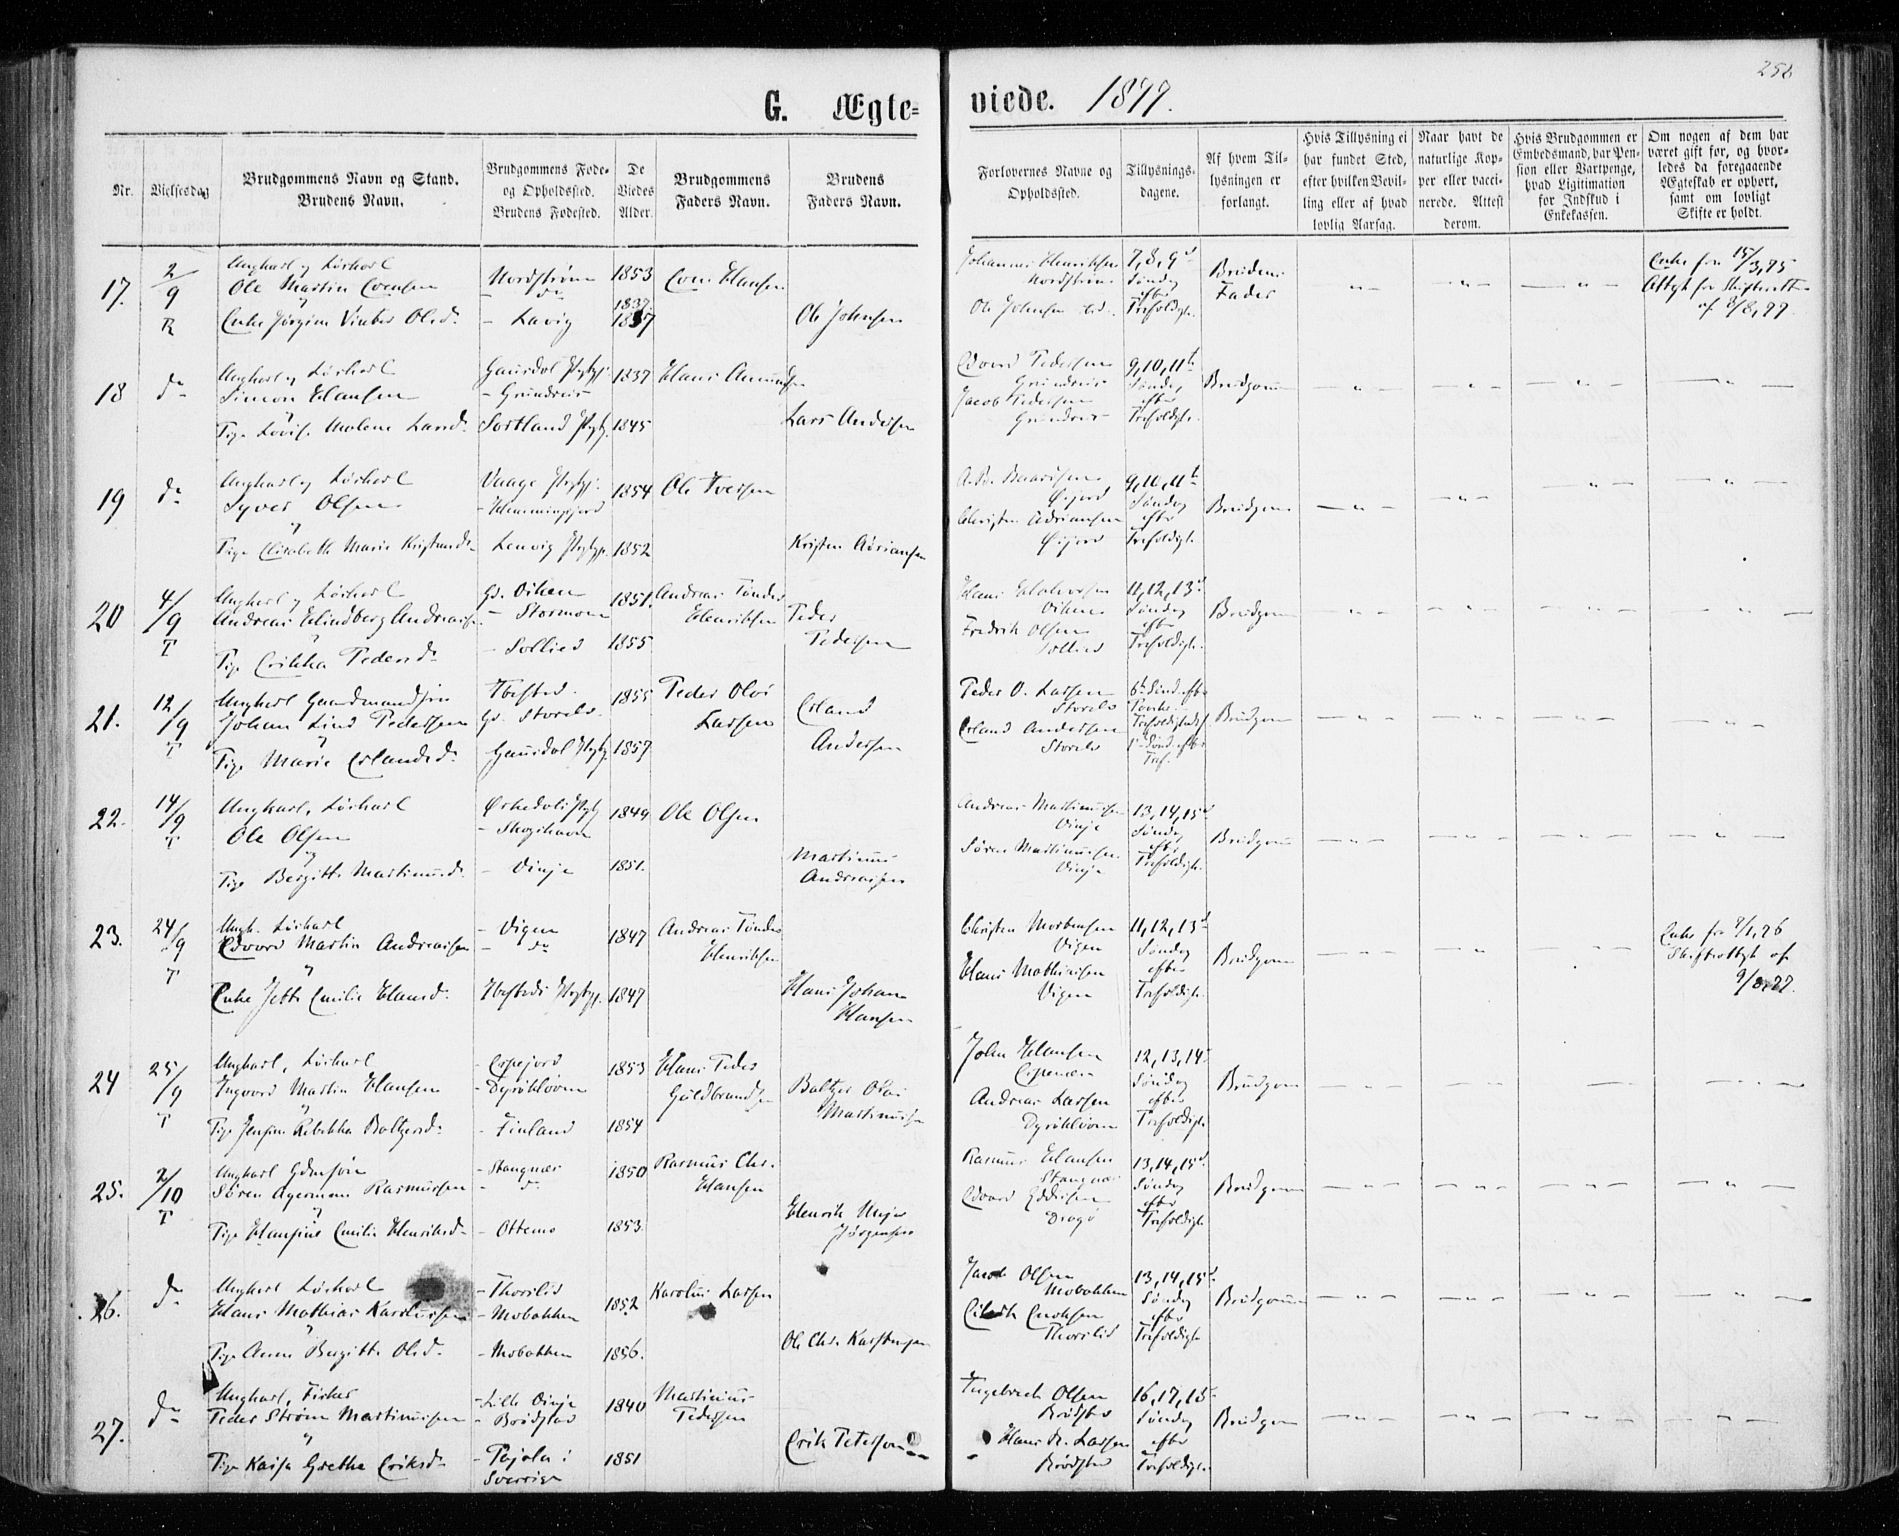 258
G. Ægte=
viede. 1877.
Nr.
Vielsesdag
Brudgommens Navn og Stand.
Brudens Navn.
Brudgommens Føde=
og Opholdssted.
Brudens Fødested.
De
Viedes
Alder.
Brudgommens
Faders Navn.
Brudens
Faders Navn.
Forlovernes Navne og
Opholdssted.
Tillysnings=
dagene.
Af hvem Til=
lysningen er
forlangt.
Hvis Tillysning ei
har fundet Sted,
efter hvilken Bevil=
ling eller af hvad
lovlig Aarsag.
Naar havt de
naturlige Kop=
per eller vacci=
nerede. Attest
derom.
Hvis Brudgommen er
Embedsmand, har Pen=
sion eller Vartpenge,
hvad Ligitimation
for Indskud i
Enkekassen.
Om nogen af dem har
været gift før, og hvor=
ledes da foregaaende
Ægteskab er ophørt,
samt om lovligt
Skifte er holdt.
17.
2/9
R
Ungkarl og Løskarl
Ole Martin Evensen
Enke Jørgine Olsd.
Nordstrøm
do
- Lavig
1853
1837
Even Hansen
Ole Johnsen
Johannes Henriksen
Nordstrøm
Ole Johnsen
7, 8, 9d
Søndag
efter
Trefoldigh.
Brudens
Fader
Enke fra 15/3, 75
Attest fra Skifteretten
af 8/8, 77
18
do
Ungkarl og Løskarl
Simon Hansen
Tige Lovise Malene Larsd.
Gausdal Prgtgj.
- Grundnes
Sortland Prgtgj.
1837
1845
Hans Amundsen
Lars Andersen
Edvard Pedersen
Grundnes
Jacob Pedersen
Grundnes
9, 10, 11te
Søndag
efter
Trefoldigh.
Brudgom
19
do
Ungkarl og Løskarl
Syver Olsen
Pige Elisabeth Marie Kristensd.
Vaage Prgtgj.
- Hemmingsjord
Lenvig Prgtgj.
1854
1852
Ole Iversen
Kristen Adriansen
Øijord
Christen Adriansen
Øijord
9, 10, 11te
Søndag
efter
Trefoldigh.
Brudgom
20
4/9
T
Ungkarl og Løskarl
Andreas Hindberg Andreassen
Pige Erikka Pedersd.
Gd. Viken
- Stormoen
- Sollied
1851.
1855
Andreas Tønder
Henriksen
Peder
Pedersen
Hans
Viken
Fredrik Olsen
Sollied
11, 12, 13d
Søndag
efter
Trefoldigh.
Brudgom
21.
12/9
T
Ungkarl Gaardmandssøn
Johan Lind Pedersen
Pige Marie Erlandsd.
Ibestad.
Gd. Storelv.
Gausdal Prgtgj.
1855
1857
Peder Olai
Larsen
Erland
Andersen
Peder O. Larsen
Storelv
Erland Andersen
Storelv
6te Sønd. efter
Paaske
Trefoldighedsf.
1ste Sønd. efter
Tref.
Brudgom
22.
14/9
T
Ungkarl, Løskarl
Ole Olsen
Pige Bergitte Martinusd.
Ørkedals Prgtgj
- Skogshavn
- Vinje
1849
1851.
Ole Olsen
Martinus
Andreassen
Andreas Martinussen
Vinje
Søren Martinussen
Vinje
13, 14, 15d
Søndag
efter
Trefoldigh.
Brudgom
23.
24/9
T
Ungk. Løskarl
Edvard Martin Andreassen
Enke Jette Emilie Hansd.
- Vigen
- do
Ibestads Prgtgj.
1847
1847
Andreas Tønder
Henriksen
Hans Johan
Hansen
Christen Mortensen
Vigen
Hans Mathisen
Vigen
11, 12, 13d
Søndag
efter
Trefoldigh.
Brudgom
Enke fra 8/1, 76
Skifteattest af
9/8, 77.
24
25/9
T
Ungkarl, Løskarl
Ingvard Martin Hansen
Pige Jensine Rebekka Baltzersd.
- Espejord
- Dyrøkløven
- Finland
1853
1854
Hans Peder
Guldbrandsen
Baltzer Olai
Martinussen
John Hansen
Espenæs
Andreas Larsen
Dyrøkløven
12, 13, 14
Søndag
efter
Trefoldigh.
Brudgom
25.
2/10
T
Ungkarl Gdmsøn
Søren Agerman Rasmussen
Pige Hansine Emilie Henriksd.
- Stangnes
- do
- Ottemo
1850
1853.
Rasmus Chr.
Hansen
Henrik Mejer
Jørgensen
Rasmus Hansen
Stangnæs
Edvard
Dragø
13, 14, 15d
Søndag
efter
Trefoldigh.
Brudgom
26.
do
Ungkarl Løskarl
Hans Mathias Karolussen
Pige Anne Bergitte Olsd.
- Thorslid
- Mobakken
- Mobakken
1852
1856.
Karolus Larsen
Ole Chr. Karstensen
Jacob Olsen
Mobakken
Enoksen
Thorslid
13, 14, 15d
Søndag
efter
Trefoldigh.
Brudgom
27.
do
Ungkarl, Fisker
Peder Strøm Martinussen
Pige Kaisa Gretha Eriksd.
- Lille Vinje
- Brødstad
- Pajala i
Sverrige
1840
1851
Martinus
Pedersen
Erik Petersen
Ingebreth Olsen
Brødstad
Hans R. Larsen
Brødstad
16, 17, 18
Søndag
efter
Trefoldigh.
Brudgom